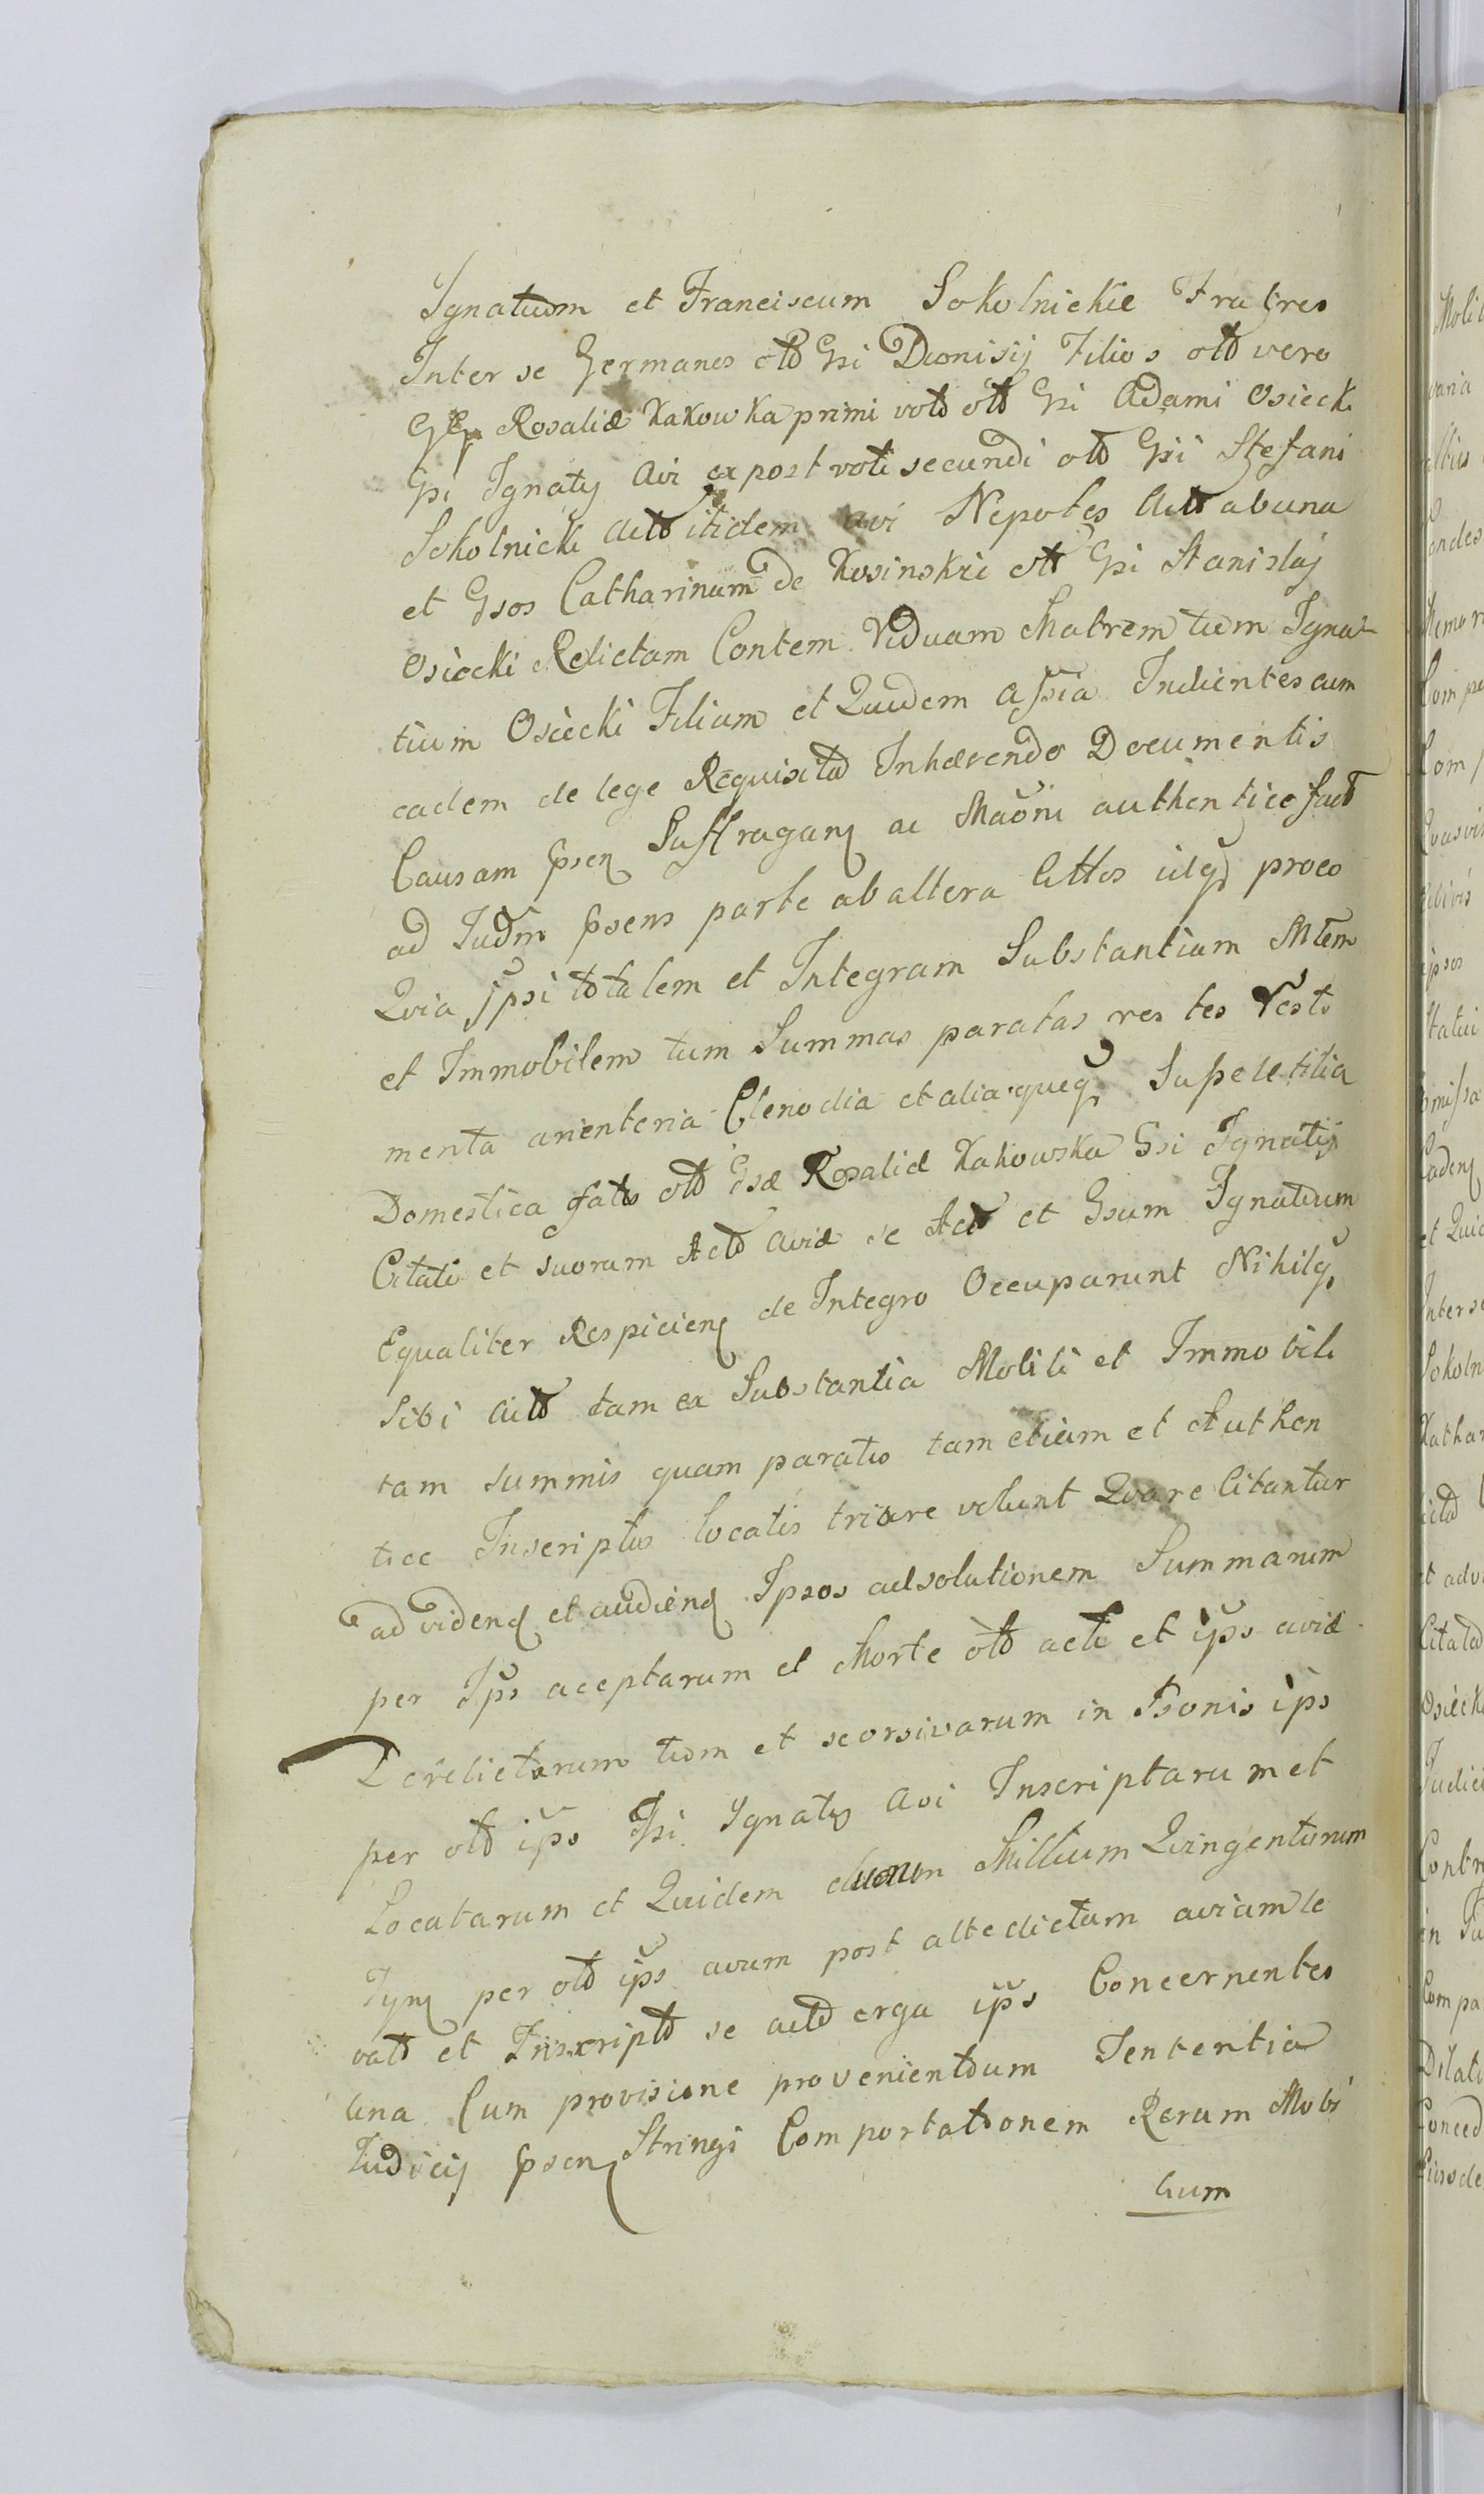 Ignatium et Franciscum Sokolnickie Fratres
Inter se Germanos olt Gsi Dionisij Filios olt vero
Gsæ Rosaliæ Kakowska primi voto olt Gsi Adami Osiecki
Gsi Ignatij Avi ex post voti secundi olt Gsi Stefani
Sokolnicki actt itidem avi Nepotes Actt ab una
et Gsos Catharinam de Kosinskie olt Gsi Stanislaj
Osiecki Relictam Contem Viduam Matrem tum Igna
tium Osiecki Filium et Quidem Assia Induentes cum
eadem de lege Requisitd Inhærendo Documentis
Causam Psen Suffragan ac Maoni authentice fact
ad Judm Psens parte ab altera Cittos idq proco
Qvia Ipsi totalem et Integram Substantiam Mlem
et Immobilem tum Summas paratas res tes Vesti
menta arienteria Clenodia et alia queq Supeletilia
Domestica fatis olt Gsæ Rosaliæ Kakowska Gsi Ignatij
Citati et suorum Actd Aviæ se Actt et Gsum Ignatium
Equaliter Respicien de Integro Occuparunt Nihilq
Sibi Actt tam ex Substantia Mobili et Immobili
tam Summis quam paratis tam etiam et Authen
tice Inscriptis locatis triare volunt Qvare Citantur
ad vidend et audiend Ipsos ad solutionem Summarum
per Ips aceptarum et Morte olt acti et ips aviæ
Derelictarum tum et seorsivarum in Psonis ips
per olt ips Gsi Ignatij Avi Inscriptarum et
Locatarum et Quidem duorum Millium Qvingentorum
Tyn per olt ips avum post alte dictam aviam le
vatt et Inscriptt se actd erga ips Concernentes
Una Cum provisione provenientium Sententia
Iudicij Psen Stringi Comportationem Rerum Mobi
lium